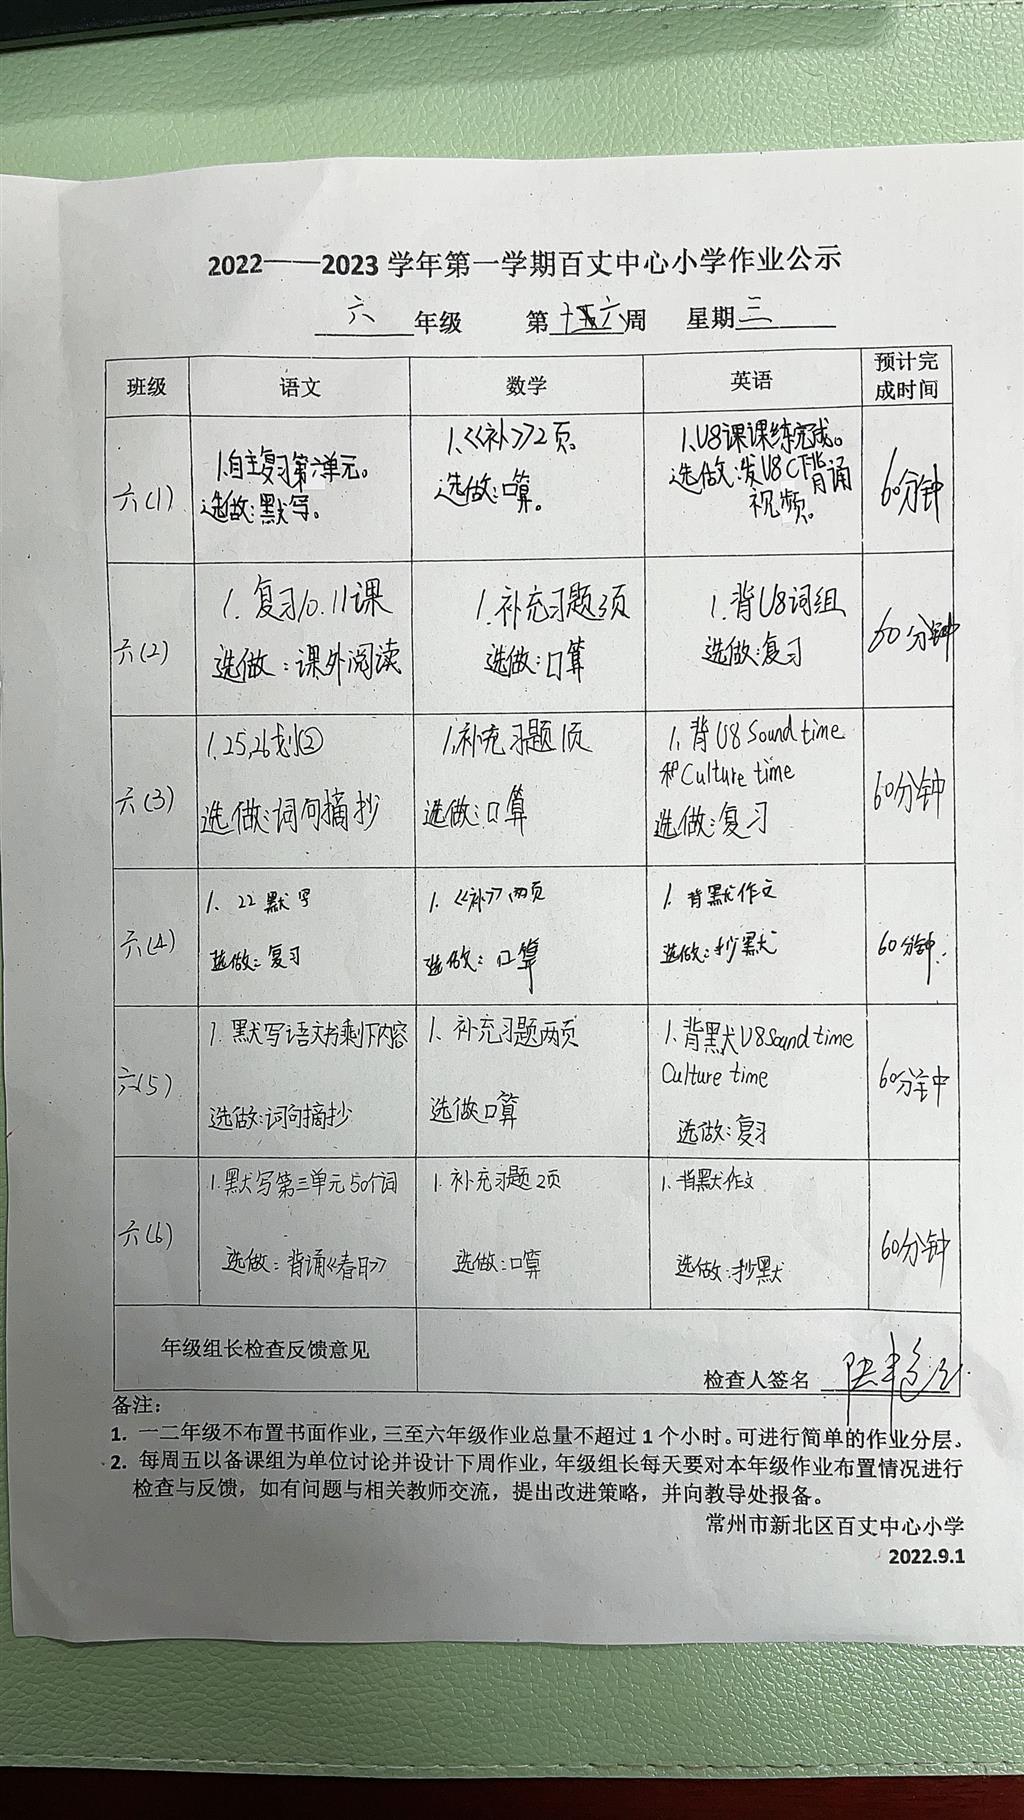 2022——2023 学年第一学期百丈中心小学作业公示
六 年级 第 十六 周 星期 三
班级 语文 数学 英语 预计完成时间
六(1)
1.自主复习第六单元。
选做:默写。
1.《补》2页。
选做:口算。
1.U8课课练完成。
选做:发U8CT背诵
视频。
60分钟
六(2)
1.复习10.11课
选做:课外阅读
1.补充习题3页
选做:口算
1.背U8词组
选做:复习
60分钟
六(3)
1.25,26划②
选做:词句摘抄
1.补充习题1页
选做:口算
1.背U8 Sound time
和Culture time
选做:复习
60分钟
六(4)
1. 22默写
选做:复习
1.《补》两页
选做:口算
1.背默作文
选做:抄默
60分钟.
六(5)
1.默写语文书剩下内容
选做:词句摘抄
1.补充习题两页
选做口算
1.背默U8Sound time
Culture time
选做:复习
60分钟
六(6)
1.默写第三单元50个词
选做:背诵《春日》
1.补充习题2页
选做:口算
1.背默作文
选做:抄默
60分钟
年级组长检查反馈意见
检查人签名
备注:
1. 一二年级不布置书面作业,三至六年级作业总量不超过1个小时。可进行简单的作业分层。
2. 每周五以备课组为单位讨论并设计下周作业,年级组长每天要对本年级作业布置情况进行
检查与反馈,如有问题与相关教师交流,提出改进策略,并向教导处报备。
常州市新北区百丈中心小学
2022.9.1